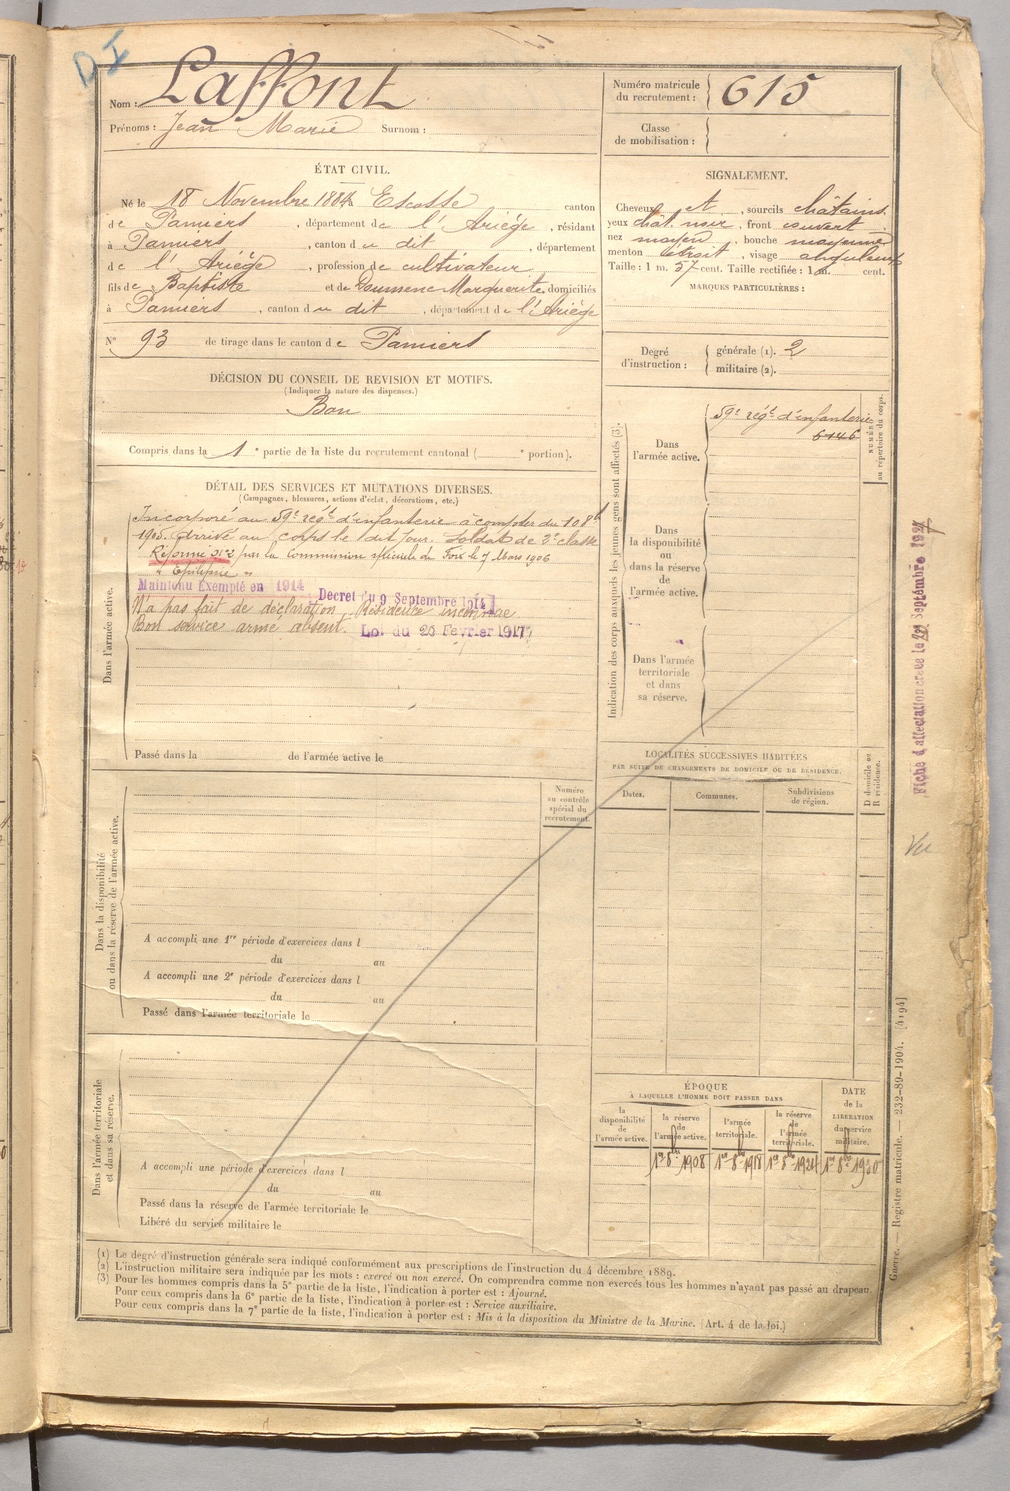 D I
Nom : Laffont
Prénoms : Jean Marie Surnom :
Numéro matricule
du recrutement : 615
Classe
de mobilisation :
ÉTAT CIVIL.
Né le 18 Novembre 1884 Escosse canton
de Pamiers, département de l'Ariège, résidant
à Pamiers, canton du dit, département
de l'Ariège, profession de cultivateur
fils de Baptiste et de Soumenc Marguerite, domiciliés
à Pamiers, canton du dit, département de l'Ariège
N° 93 de tirage dans le canton de Pamiers
SIGNALEMENT.
Cheveux et, sourcils châtains
yeux chât. noir, front couvert
nez moyen, bouche moyenne
menton étroit, visage anguleux
Taille : 1 m. 57 cent. Taille rectifiée : 1 m. cent.
MARQUES PARTICULIÈRES :
Degré
d'instruction :
générale (1). 2
militaire (2).
DÉCISION DU CONSEIL DE REVISION ET MOTIFS.
(Indiquer la nature des dispenses.)
Bon
Compris dans la 1e partie de la liste du recrutement cantonal ( e portion).
DÉTAIL DES SERVICES ET MUTATIONS DIVERSES.
(Campagnes, blessures, actions d'éclat, décorations, etc.)
Dans l'armée active.
Incorporé au 59e régt d'infanterie à compter du 10 8bre
1905. Arrivé au corps le dit jour. Soldat de 2e classe
Réformé N° 2 par la Commission spéciale de Foix le 7 Mars 1906
« Epilepsie »
Maintenu Exempté en 1914 Décret du 9 Septembre 1914
N'a pas fait de déclaration Résidence inconnue
Bon service armé absent. Loi du 20 Février 1917
Passé dans la de l'armée active le
Indication des corps auxquels les jeunes gens sont affectés (3).
Dans
l'armée active.
59e régt d'infanterie
6146
NUMÉRO
au répertoire du corps.
Dans
la disponibilité
ou
dans la réserve
de
l'armée active.
Dans l'armée
territoriale
et dans
sa réserve.
LOCALITÉS SUCCESSIVES HABITÉES
PAR SUITE DE CHANGEMENTS DE DOMICILE OU DE RÉSIDENCE.
Dates.
Communes.
Subdivisions
de région.
D domicile ou
R résidence.
Dans la disponibilité
ou dans la réserve de l'armée active.
Numéro
au contrôle
spécial du
recrutement.
A accompli une 1re période d'exercices dans l
du au
A accompli une 2e période d'exercices dans l
du au
Passé dans l'armée territoriale le
Dans l'armée territoriale
et dans sa réserve.
A accompli une période d'exercices dans l
du au
Passé dans la réserve de l'armée territoriale le
Libéré du service militaire le
ÉPOQUE
À LAQUELLE L'HOMME DOIT PASSER DANS
la
disponibilité
de
l'armée active.
la réserve
de
l'armée active.
l'armée
territoriale.
la réserve
de
l'armée
territoriale.
DATE
de la
LIBÉRATION
du service
militaire.
1er 8bre 1908 1er 8bre 1918 1er 8bre 1924 1er 8bre 1930
(1) Le degré d'instruction générale sera indiqué conformément aux prescriptions de l'instruction du 4 décembre 1889.
(2) L'instruction militaire sera indiquée par les mots : exercé ou non exercé. On comprendra comme non exercés tous les hommes n'ayant pas passé au drapeau.
(3) Pour les hommes compris dans la 5e partie de la liste, l'indication à porter est : Ajourné.
Pour ceux compris dans la 6e partie de la liste, l'indication à porter est : Service auxiliaire.
Pour ceux compris dans la 7e partie de la liste, l'indication à porter est : Mis à la disposition du Ministre de la Marine. (Art. 4 de la loi.)
Guerre. — Registre matricule. — 232-89-1904. [4194]
Fiche d'affectation créée le Septembre
Vu